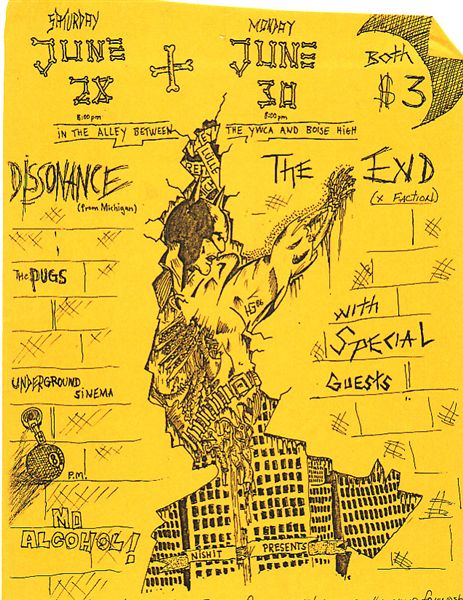 SATURDAY
JUNE
28
8:00 pm
MONDAY
JUNE
30
8:00 pm
BOTH
$3
IN THE ALLEY BETWEEN THE YWCA AND BOISE HIGH
DISSONANCE
(from Michigan)
THE PUGS
UNDERGROUND
SINEMA
P.M.
NO
ALCOHOL!
THE END
(X FACTION)
WITH
SPECIAL
GUESTS
NISHIT PRESENTS